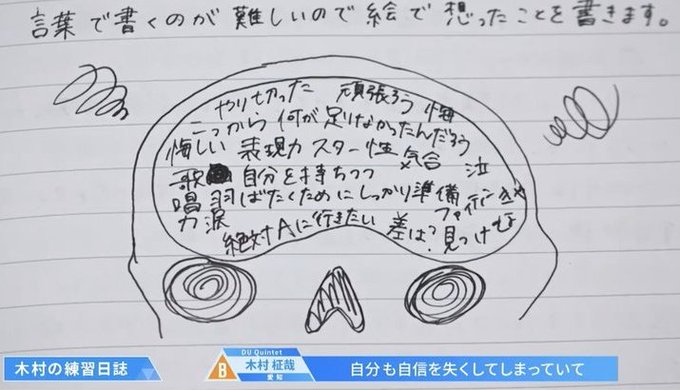 言葉で書くのが難しいので絵で想ったことを書きます。
やりたかった 頑張ろう 悔
こっから 何が足りなかったんだろう
悔しい 表現力 スター性 気合
歌 自分を持ちつつ 泣
唱 羽ばたくためにしっかり準備 ファイティン
力 涙
絶対Aに行きたい 差は?見つけな
木村の練習日誌
B
DU Quintet
木村 柾哉
愛知
自分も自信を失くしてしまっていて